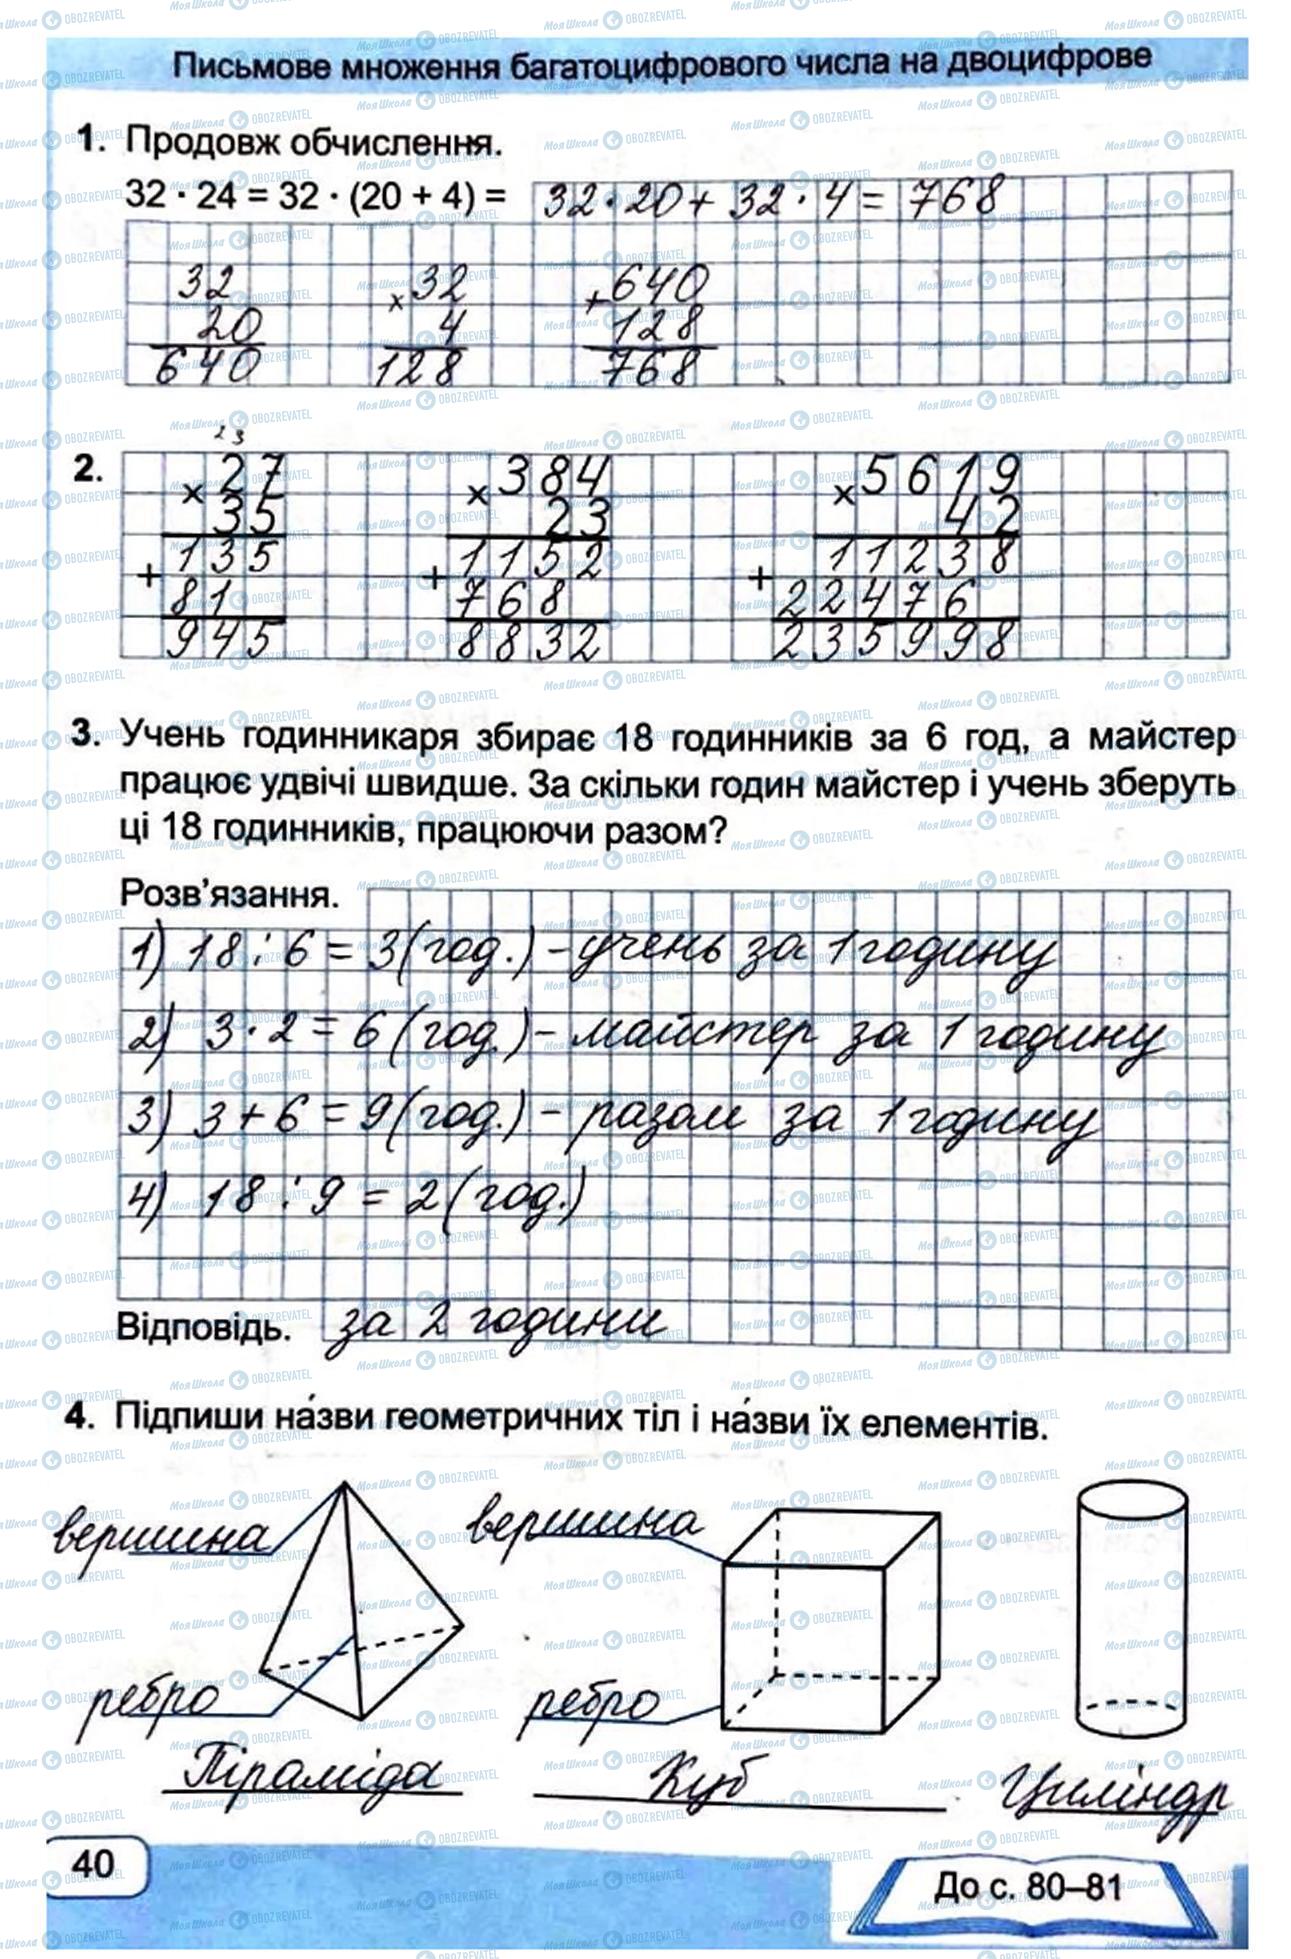 Письмове множення багатоцифрового числа на двоцифрове
1. Продовж обчислення.
32 · 24 = 32 · (20 + 4) = 32 · 20 + 32 · 4 = 768
32 × 32 + 640
20 4 128
640 128 768
2 3
2. × 27 × 384 × 5619
35 23 42
+ 135 + 1152 + 11238
81 768 22476
945 8832 235998
3. Учень годинникаря збирає 18 годинників за 6 год, а майстер
працює удвічі швидше. За скільки годин майстер і учень зберуть
ці 18 годинників, працюючи разом?
Розв'язання.
1) 18 : 6 = 3 (год.) - учень за 1 годину
2) 3 · 2 = 6 (год.) - майстер за 1 годину
3) 3 + 6 = 9 (год.) - разом за 1 годину
4) 18 : 9 = 2 (год.)
Відповідь. за 2 години
4. Підпиши на́зви геометричних тіл і на́зви їх елементів.
вершина вершина
ребро ребро
Піраміда Куб Циліндр
40
До с. 80–81
МояШкола OBOZREVATEL